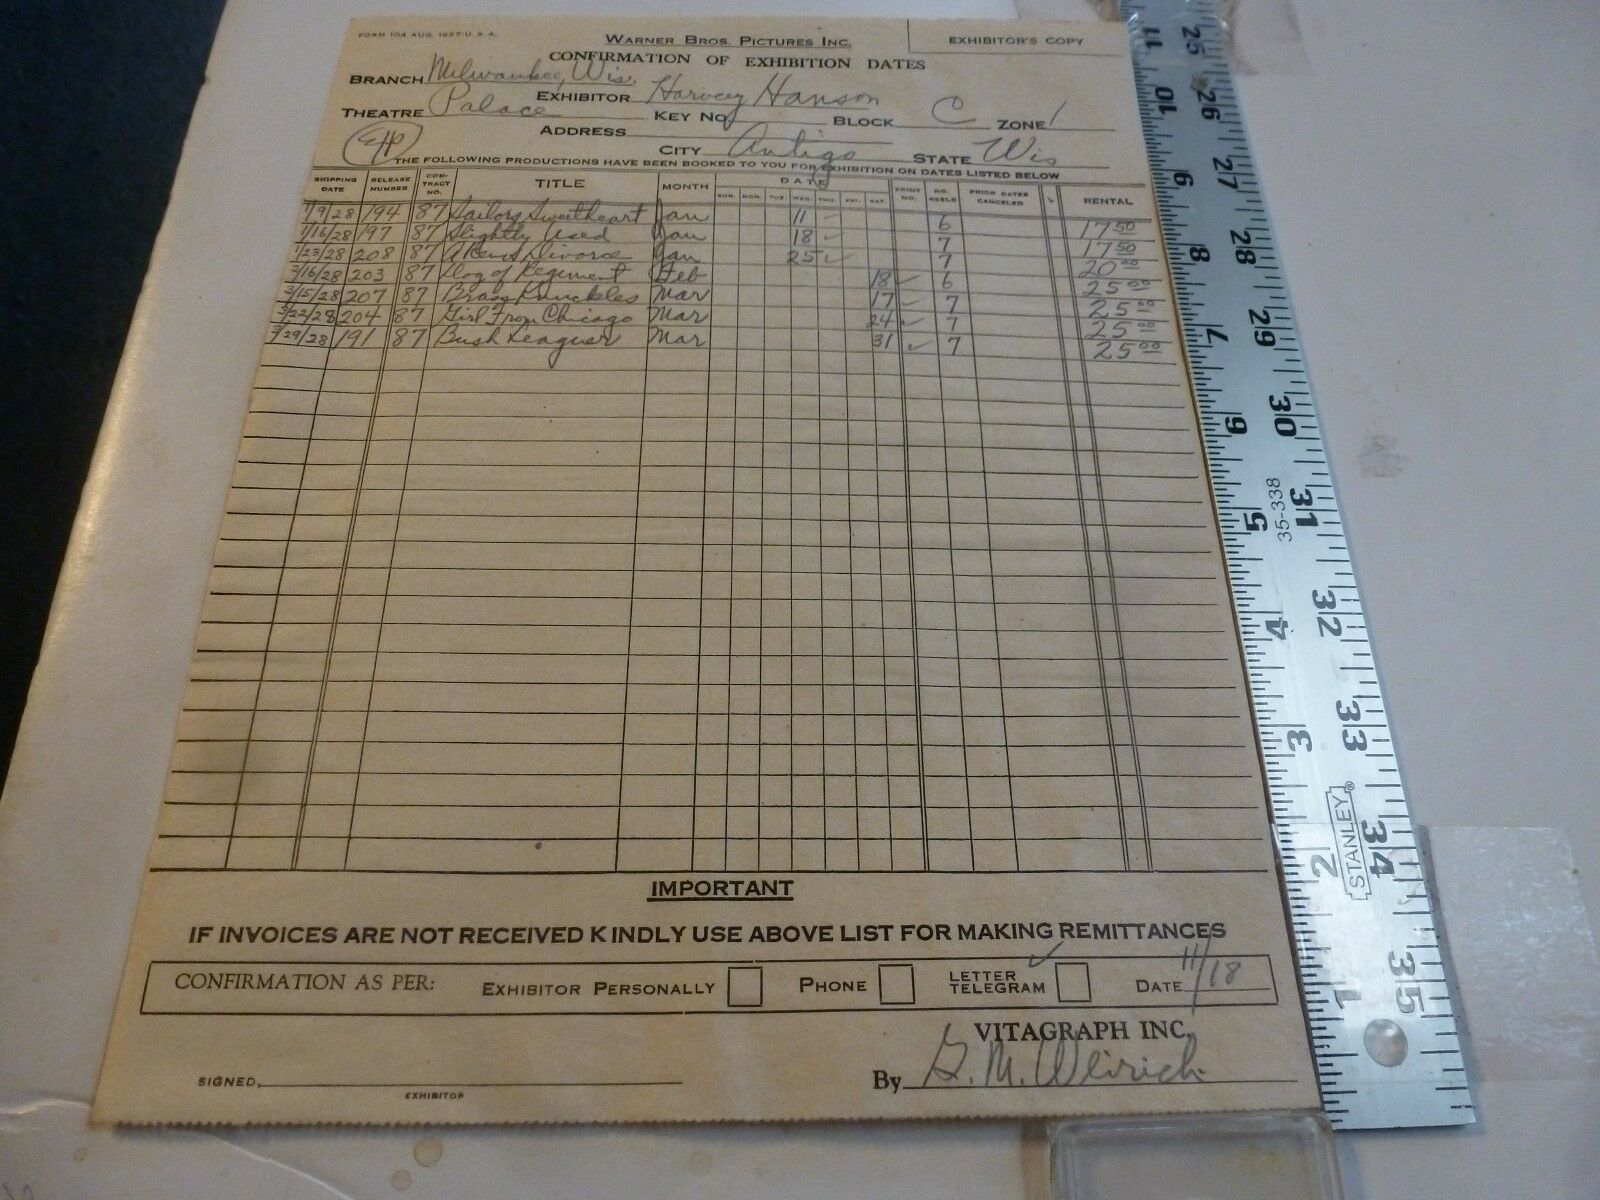 FORM 104 AUG. 1927 U.S.A.
WARNER BROS. PICTURES INC.
EXHIBITOR'S COPY
CONFIRMATION OF EXHIBITION DATES
BRANCH Milwaukee, Wis.
EXHIBITOR Harvey Hanson
THEATRE Palace
KEY NO. BLOCK C ZONE 1
ADDRESS
CITY Antigo STATE Wis
THE FOLLOWING PRODUCTIONS HAVE BEEN BOOKED TO YOU FOR EXHIBITION ON DATES LISTED BELOW
SHIPPING DATE RELEASE NUMBER CONTRACT NO. TITLE MONTH DATE PRINT NO. NO. REELS PRIOR DATES CANCELED RENTAL
SUN. MON. TUE. WED. THU. FRI. SAT.
1/9/28 194 87 Sailors Sweetheart Jan 11 6 17 50
1/16/28 197 87 Slightly Used Jan 18 7 17 50
1/23/28 208 87 A Reno Divorce Jan 25 7 20 00
2/16/28 203 87 Dog of Regiment Feb 18 6 25 00
3/15/28 207 87 Brass Knuckles Mar 17 7 25 00
3/22/28 204 87 Girl From Chicago Mar 24 7 25 00
3/29/28 191 87 Bush Leaguer Mar 31 7 25 00
IMPORTANT
IF INVOICES ARE NOT RECEIVED KINDLY USE ABOVE LIST FOR MAKING REMITTANCES
CONFIRMATION AS PER: EXHIBITOR PERSONALLY PHONE LETTER TELEGRAM DATE 11/18
VITAGRAPH INC.
By G. M. Weirich
SIGNED,
EXHIBITOR
11 10 9 8 7 6 5 4 3 2 1
25 26 27 28 29 30 31 32 33 34 35
35-338
STANLEY®